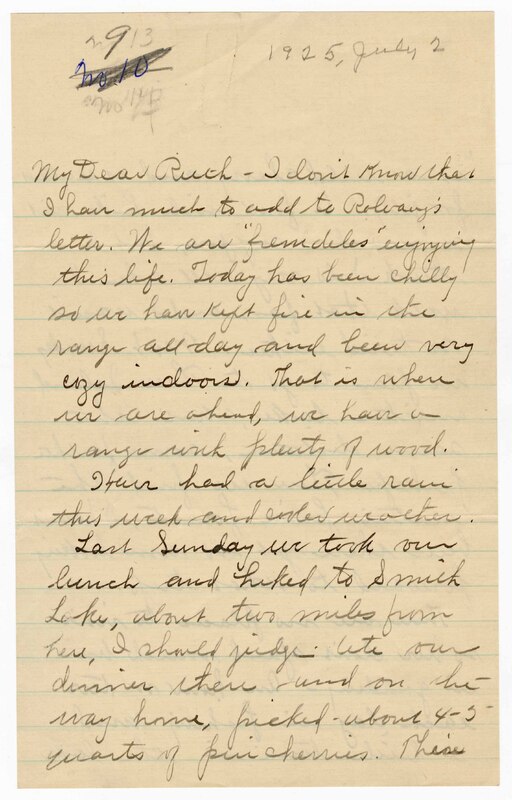 9 13
No. 10
1925, July 2
My Dear Ruth - I don't know that
I have much to add to Rolvaag's
letter. We are "fremdeles" enjoying
this life. Today has been chilly
so we have kept fire in the
range all-day and been very
cozy indoors. That is where
we are ahead, we have a
range with plenty of wood.
Have had a little rain
this week and cooler weather.
Last Sunday we took our
lunch and hiked to Smith
Lake, about two miles from
here, I should judge. Ate our
dinner there and on the
way home, picked about 4-5
quarts of pincherries. These